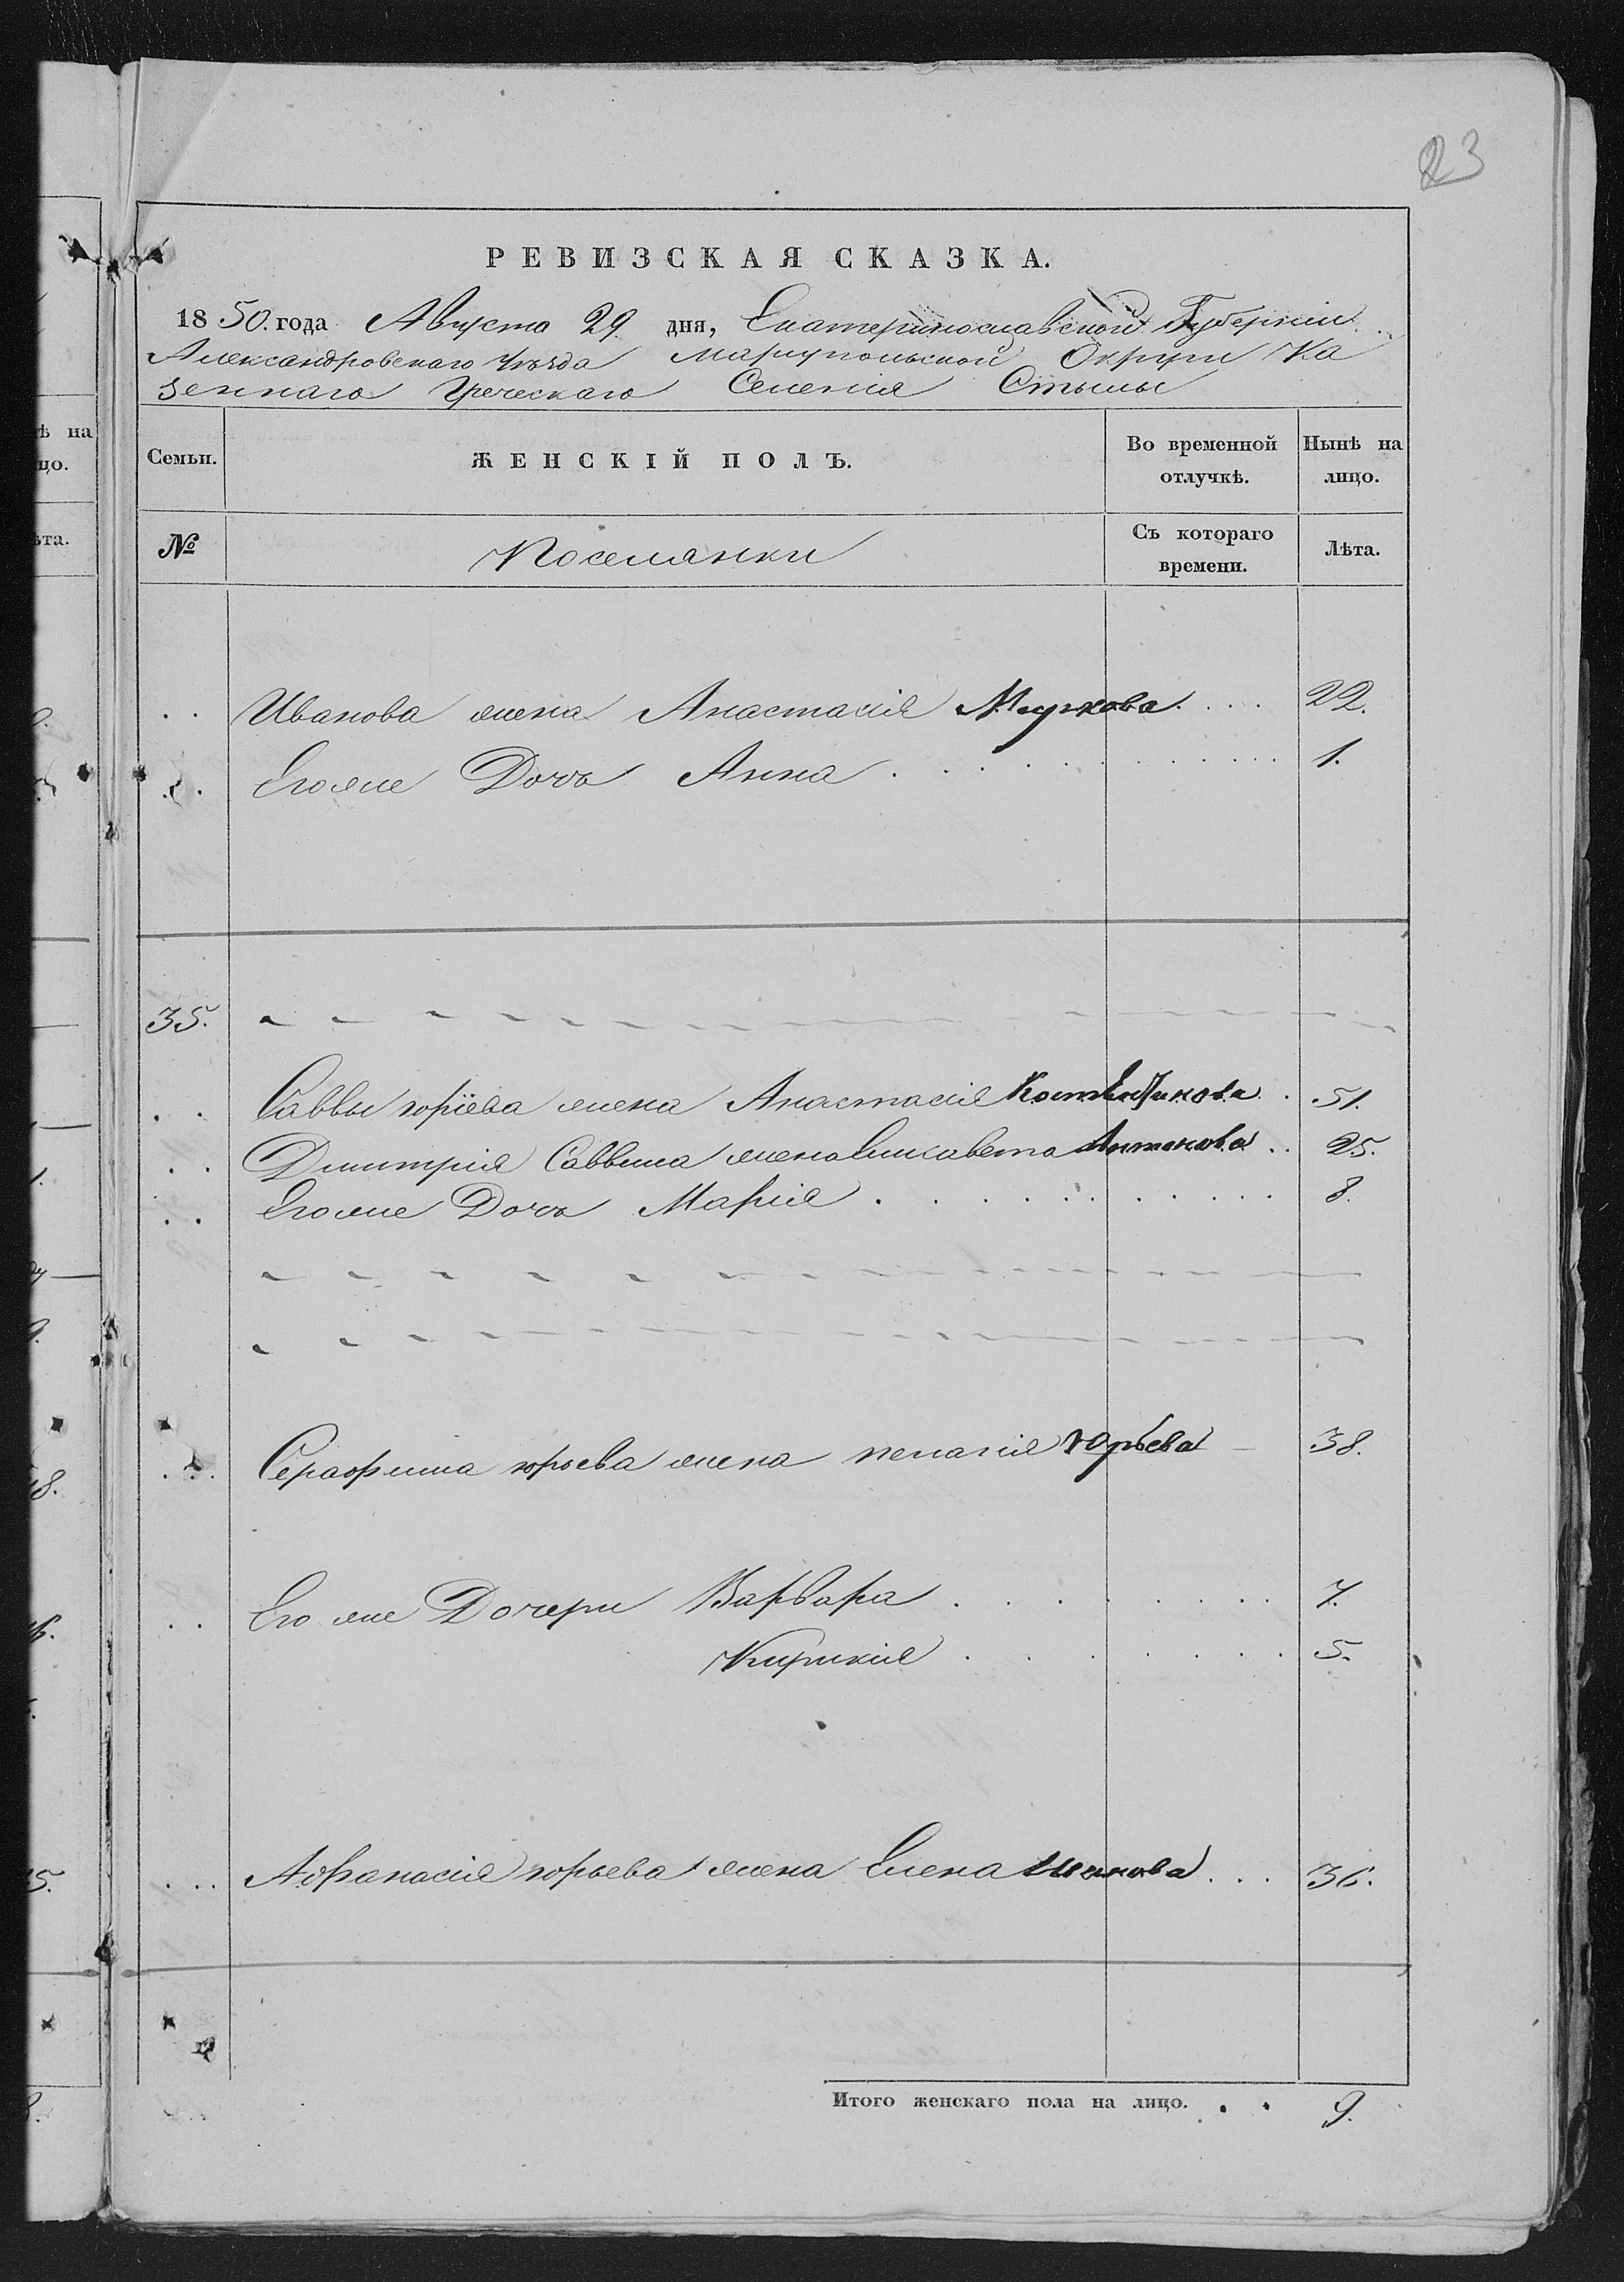 23
РЕВИЗСКАЯ СКАЗКА.
1850. года Августа 29 дня, Екатеринославской Губернии
Александровскаго Уѣзда Мариупольской Округи Ка
зеннаго Греческаго Селенія Стылы
Семьи. ЖЕНСКІЙ ПОЛЪ. Во временной отлучкѣ. Нынѣ на лицо.
№ Поселянки Съ котораго времени. Лѣта.
Иванова жена Анастасія 22.
Егоже Дочь Анна 1.
35.
Саввы Юріева жена Анастасія 51.
Дмитрія Саввина жена Елисавета Антонова 25.
Егоже Дочь Марія 8.
Серафима юрьева жена пелагия Юрьева 38.
Его же Дочери Варвара 7.
Кирикія 5.
Афанасія юрьева жена Елена 36.
Итого женскаго пола на лицо. 9.
ѣ на
цо.
ѣта.